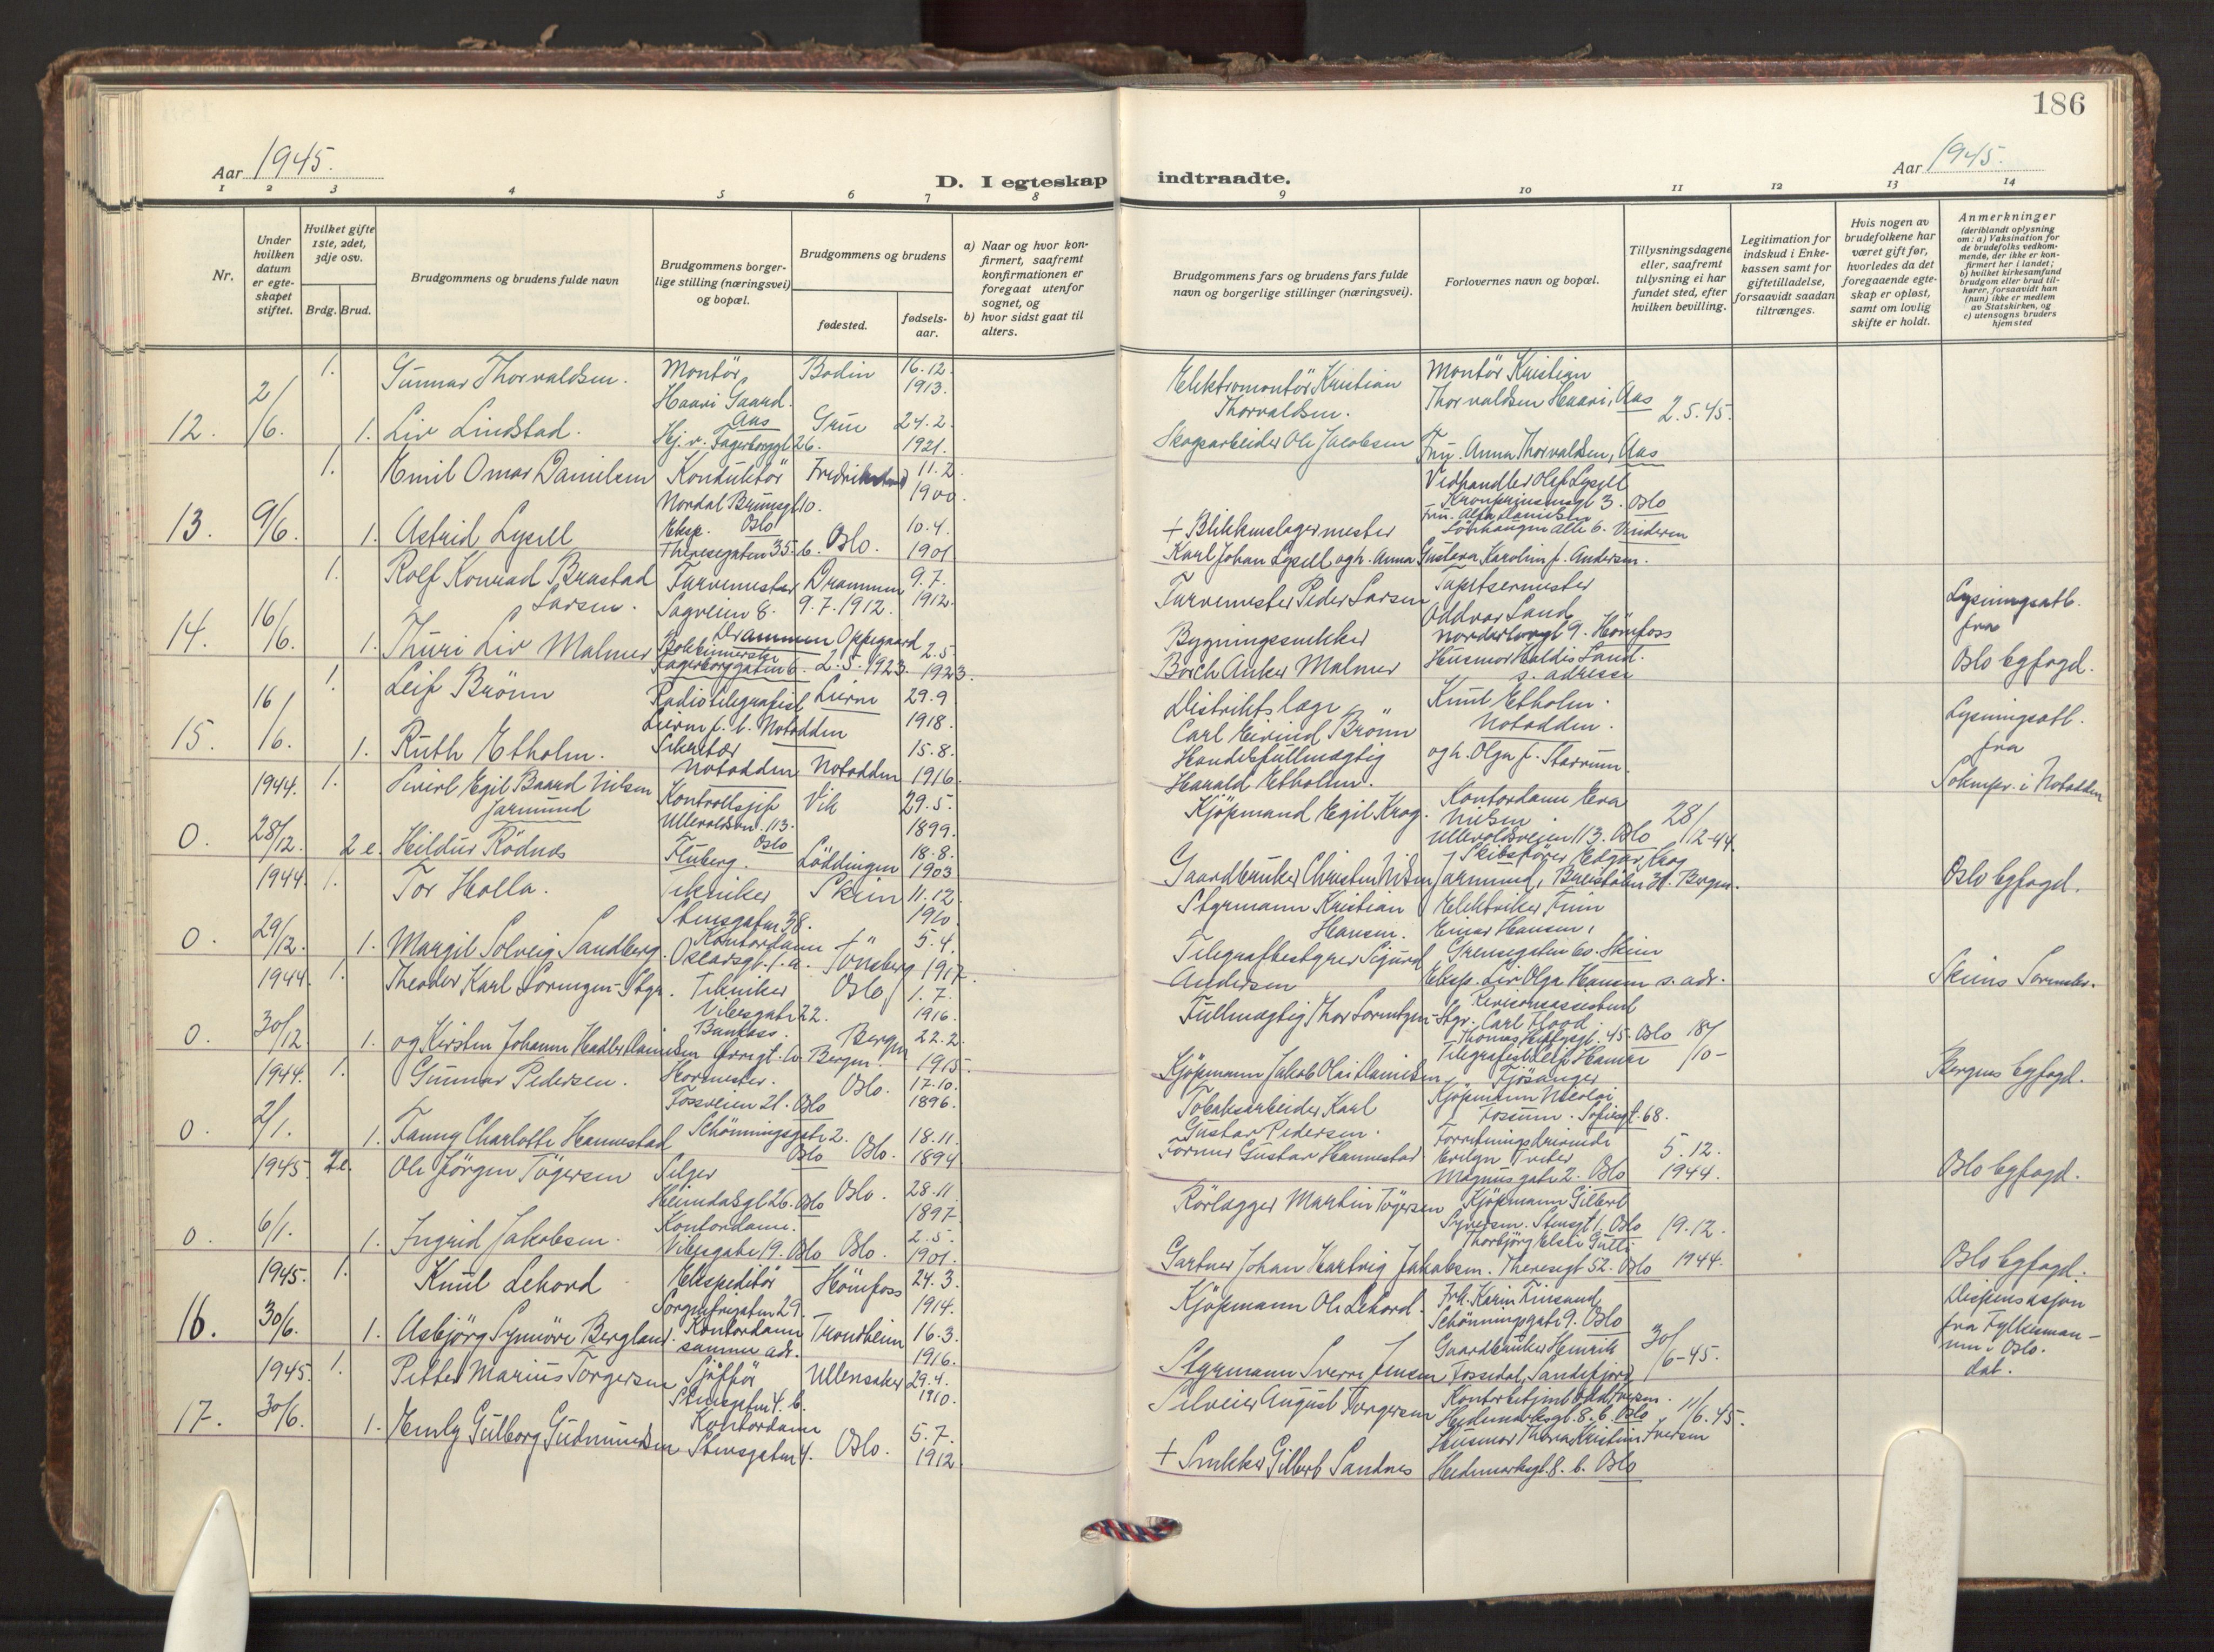 186
Aar 1945.
D. I egteskap indtraadte.
Aar 1945.
1 2 3 4 5 6 7 8 9 10 11 12 13 14
Nr.
Under hvilken datum er egteskapet stiftet.
Hvilket gifte 1ste, 2det, 3dje osv.
Brdg. Brud.
Brudgommens og brudens fulde navn
Brudgommens borgerlige stilling (næringsvei) og bopæl.
Brudgommens og brudens
fødested.
fødselsaar.
a) Naar og hvor konfirmert, saafremt konfirmationen er foregaat utenfor sognet, og
b) hvor sidst gaat til alters.
Brudgommens fars og brudens fars fulde navn og borgerlige stillinger (næringsvei).
Forlovernes navn og bopæl.
Tillysningsdagene eller, saafremt tillysning ei har fundet sted, efter hvilken bevilling.
Legitimation for indskud i Enkekassen samt for giftetilladelse, forsaavidt saadan tiltrænges.
Hvis nogen av brudefolkene har været gift før, hvorledes da det foregaaende egteskap er opløst, samt om lovlig skifte er holdt.
Anmerkninger
(deriblandt oplysning om: a) Vaksination for de brudefolks vedkommende, der ikke er konfirmert her i landet; b) hvilket kirkesamfund brudgom eller brud tilhører, forsaavidt han (hun) ikke er medlem av Statskirken, og c) utensogns bruders hjemsted
12. 2/6. 1. Gunnar Thorvaldsen. Montör Haari Gaard. Aas Bodin 16.12. 1913.
Elektromontör Kristian Thorvaldsen. Montör Kristian Thorvaldsen Haari, Aas 2.5.45.
1. Liv Lindstad. Hj.v. Fagerborggt 26. Grue 24.2. 1921.
Skogsarbeider Ole Jacobsen Fru Anna Thorvaldsen, Aas
13. 9/6. 1. Emil Omar Danielsen Konduktör Nordal Brunsgt 10. Oslo Fredrikstad 11.2. 1900.
Vedhandler Olaf Lysell Kronprinsensgt 3. Oslo
1. Astrid Lysell Eksp. Theresegaten 35.b. Oslo. 10.4. 1901
+ Blikkenslagermester Karl Johan Lysell og h. Anna Gustava Karoline f. Andersen.
14. 16/6. 1. Rolf Konrad Brastad Larsen. Farvemester Sagveien 8. Drammen Drammen 9.7.1912. 9.7. 1912.
Farvemester Peder Larsen Tapetsermester Oddvar Sand 9. Hönefoss
1. Thuri Liv Malmer Fagerborggaten 6. Oppegaard 2.5.1923. 2.5. 1923.
Bygningssnekker Borch Anker Malmer Husmor Haldis Sand. s. adresse
Lysningsatt. fra Oslo byfogd.
15. 16/6. 1. Leif Brönn Radiotelegrafist Notodden 29.9 1918.
Distriktslæge Carl Eivind Brönn Knut Etholm. Notodden.
1. Ruth Etholm. Sekretær Notodden Notodden 15.8. 1916.
Handelsfullmægtig Harald Etholm. og h. Olga f.
Lysningsatt. fra Sokneprest i Notodden
0. 1944. 28/12. 1. Egil Baard Nilsen Jarmund Kontrollsjef Ullevoldsvn. 113. Oslo Vik 29.5. 1899.
Kjöpmand Egil Krog. Kontordame Eva Nilsen Ullevoldsveien 113. Oslo 28/12-44.
2 e. Hildur Rödnes Fluberg. Löddingen 18.8. 1903
Gaardbruker Christen Nilsen Skibsförer Edgar Krog Jarmund, Bergen.
Oslo byfogd.
0. 1944 29/12. 1. Tor Holla. Tekniker Stensgaten 38. Skien 11.12. 1910.
Styrmann Kristian Hansen. Elektriker Einar Hansen, Grensegaten 60. Skien
1. Margit Solveig Sandberg. Kontordame Oscarsgt. 1.a. Tönsberg 5.4. 1917.
Telegrafbestyrer Sigurd Andersen Eksp. Liv Olga Hansen s. adr.
Skiens
0. 1944 30/12. 1. Theodor Karl Tekniker Vibesgate 22. Oslo 1.7. 1916.
Fullmægtig Thor Revisorassistent Carl Flood Thomas Heftyesgt. 45. Oslo 18/10-
1. og Kirsten Johanne Danielsen Bankass. Bergen. Bergen 22.2. 1915.
Kjöpmann Jakob Olai Danielsen Telegrafist Leif Hamar Fjösanger
Bergens byfogd.
0. 1944. 2/1. 1. Gunnar Pedersen. Fossveien 21. Oslo Oslo. 17.10. 1896.
Tobaksarbeider Karl Gustav Pedersen. Kjöpmann Nicolai Fossum. Sofiesgt. 68.
1. Fanny Charlotte Hannestad Schönningsgate 2. Oslo Oslo. 18.11. 1894
Former Gustav Hannestad Forretningsdrivende Magnusgate 2. Oslo 5.12. 1944.
Oslo byfogd.
0. 1945 6/1. 2e. Ole Jörgen Tögersen Selger Heimdalsgt 26. Oslo Oslo. 28.11. 1897.
Rörlægger Martin Tögersen Kjöpmann Gilbert Syversen. Stensgt 1. Oslo 19.12. 1944.
1. Ingrid Jakobsen. Kontordame. Vibesgate 19. Oslo Oslo. 2.5. 1901.
Gartner Johan Hartvig Jakobsen. Theresegt 52. Oslo
Oslo byfogd.
16. 1945. 30/6. 1. Knut Lehord Ekspeditör Sorgenfrigaten 29. Hönefoss 24.3. 1914.
Kjöpmann Ole Lehord. Frk. Karin Schönningsgate 9. Oslo
1. Asbjörg Synnöve Bergland. Kontordame samme adr. Trondheim 16.3. 1916.
Styrmann Sverre Jensen Gaardbruker Henrik Fossedal, Sandefjord 30/6-45.
Dispensasjon fra Fylkesmannen i Oslo. dat.
17. 1945. 30/6. 1. Petter Marius Torgersen Sjåffför Stensgaten 4.b. Ullensaker 29.4. 1910.
August Torgersen Hedemarksgt. 8.b. Oslo 11/6.45.
1. Emly Gulborg Gudmundsen Kontordame Stensgaten 4. Oslo. 5.7. 1912.
+ Snekker Gilbert Sandnes Husmor Thora Kristine Iversen Hedemarksgt. 8.b. Oslo